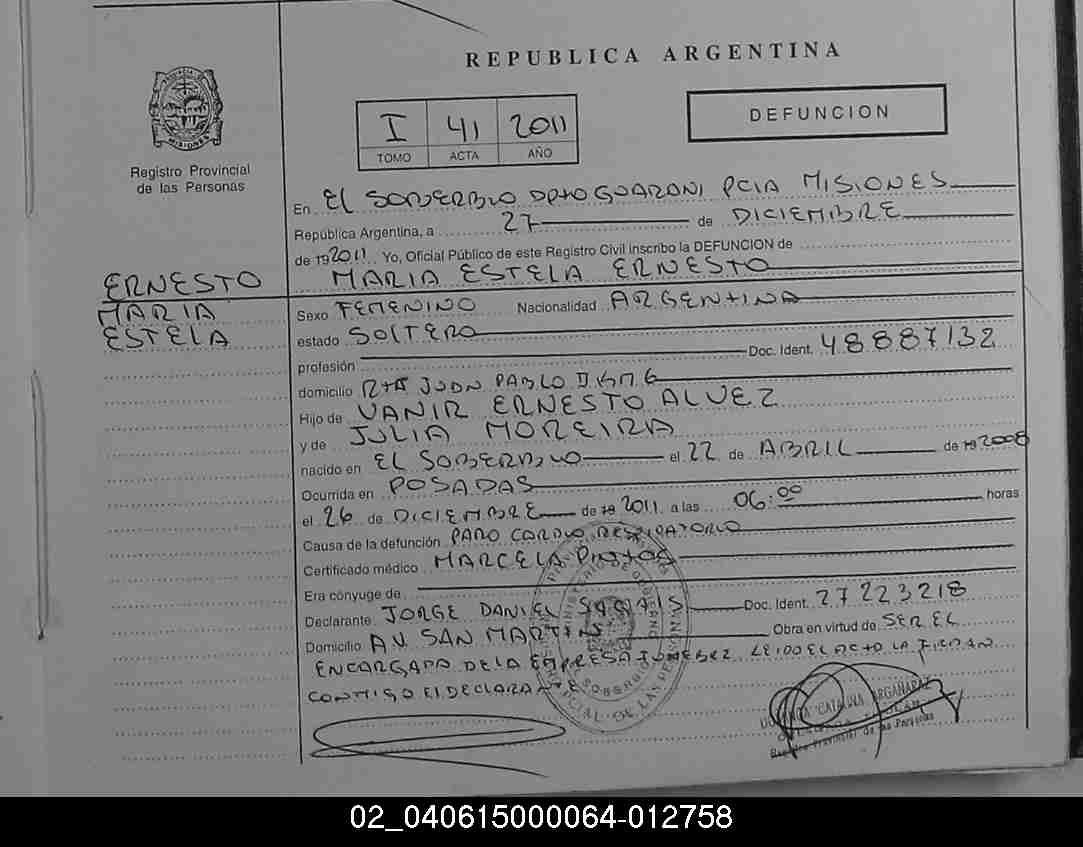 REPUBLICA ARGENTINA
PROVINCIA DE
MISIONES
Registro Provincial
de las Personas
I 41 2011
TOMO ACTA AÑO
DEFUNCION
En EL SOBERBIO DPTO GUARANI PCIA MISIONES
República Argentina, a 27 de DICIEMBRE
de 19 2011 Yo, Oficial Público de este Registro Civil inscribo la DEFUNCION de
ERNESTO MARIA ESTELA ERNESTO
MARIA
ESTELA
Sexo FEMENINO Nacionalidad ARGENTINA
estado SOLTERO
profesión Doc. Ident. 48887132
domicilio RTA JUAN PABLO II KM 6
Hijo de VANIR ERNESTO ALVEZ
y de JULIA MOREIRA
nacido en EL SOBERBIO el 22 de ABRIL de 19 2008
Ocurrida en POSADAS
el 26 de DICIEMBRE de 19 2011 a las 06:00 horas
Causa de la defunción PARO CARDIO RESPIRATORIO
Certificado médico MARCELA
Era cónyuge de
Declarante JORGE DANIEL Doc. Ident. 27223218
Domicilio AV. SAN MARTIN Obra en virtud de SER EL
ENCARGADA DE LA EMPRESA FUNEBRE LEIDO EL ACTA LA FIRMAN
CONMIGO EL DECLARANTE
CATALINA ARGAÑARAZ
Registro Provincial de las Personas
02_040615000064-012758